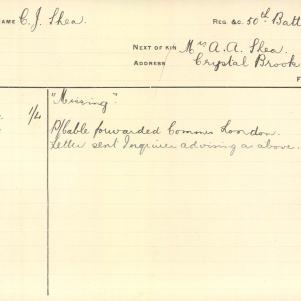 NAME C. J. Shea. REG. &C. 50th Batt
NEXT OF KIN Mrs A. A. Shea.
ADDRESS Crystal Brook
"Missing".
1/4 P/Cable forwarded Commrs London.
Letter sent Inquirer advising as above.